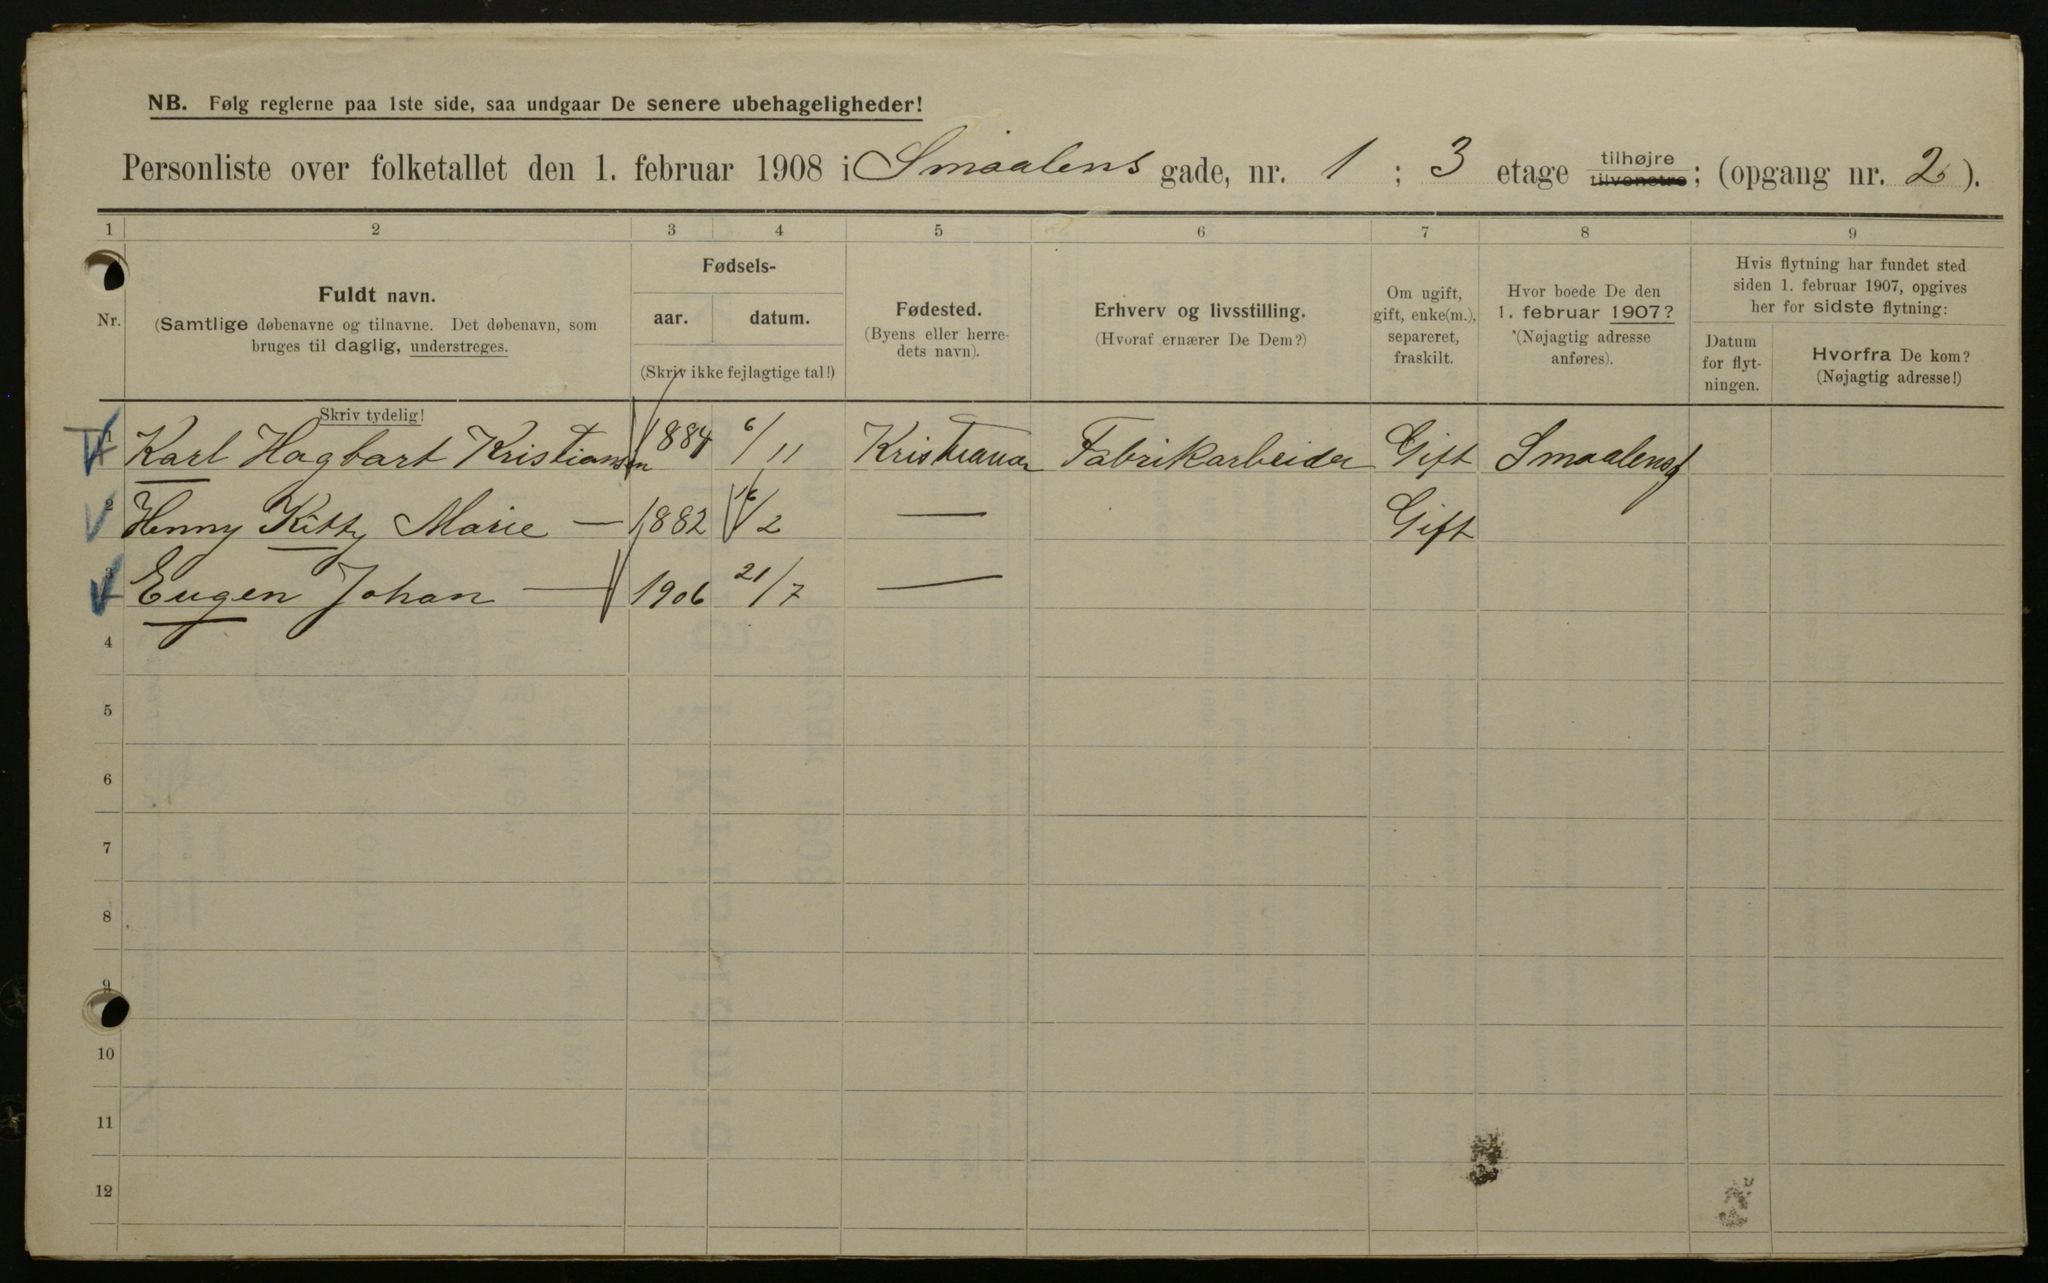 NB. Følg reglerne paa 1ste side, saa undgaar De senere ubehageligheder!
Personliste over folketallet den 1. februar 1908 i Smaalens gade, nr. 1 ; 3 etage tilhøjre tilvenstre ; (opgang nr. 2 ).
1 2 3 4 5 6 7 8 9
Nr.
Fuldt navn.
(Samtlige døbenavne og tilnavne. Det døbenavn, som
bruges til daglig, understreges.
Skriv tydelig!
Fødsels-
aar. datum.
(Skriv ikke fejlagtige tal!)
Fødested.
(Byens eller herre-
dets navn).
Erhverv og livsstilling.
(Hvoraf ernærer De Dem?)
Om ugift,
gift, enke(m.),
separeret,
fraskilt.
Hvor boede De den
1. februar 1907?
(Nøjagtig adresse
anføres).
Hvis flytning har fundet sted
siden 1. februar 1907, opgives
her for sidste flytning:
Datum
for flyt-
ningen.
Hvorfra De kom?
(Nøjagtig adresse!)
1 Karl Hagbart Kristiansen 1884 6/11 Kristiania Fabrikarbeider Gift Smaalensg
2 Henny Kitty Marie — 1882 16/2 — Gift
3 Eugen Johan — 1906 21/7 —
4
5
6
7
8
9
10
11
12